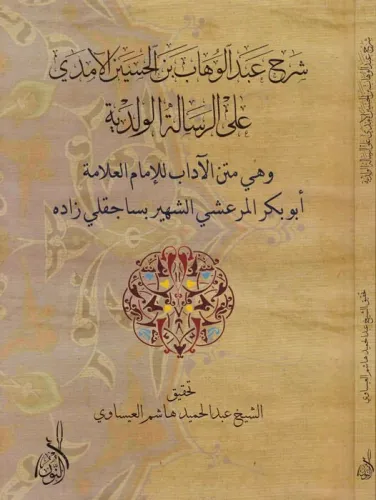 شرح عبد الوهاب بن الحسين الآمدي
على الرسالة الولدية
وهي متن الآداب للإمام العلامة
أبو بكر المرعشي الشهير بساجقلي زاده
تحقيق
الشيخ عبد الحميد هاشم العيساوي
النور
شرح عبد الوهاب بن الحسين الآمدي على الرسالة الولدية
تحقيق الشيخ عبد الحميد هاشم العيساوي